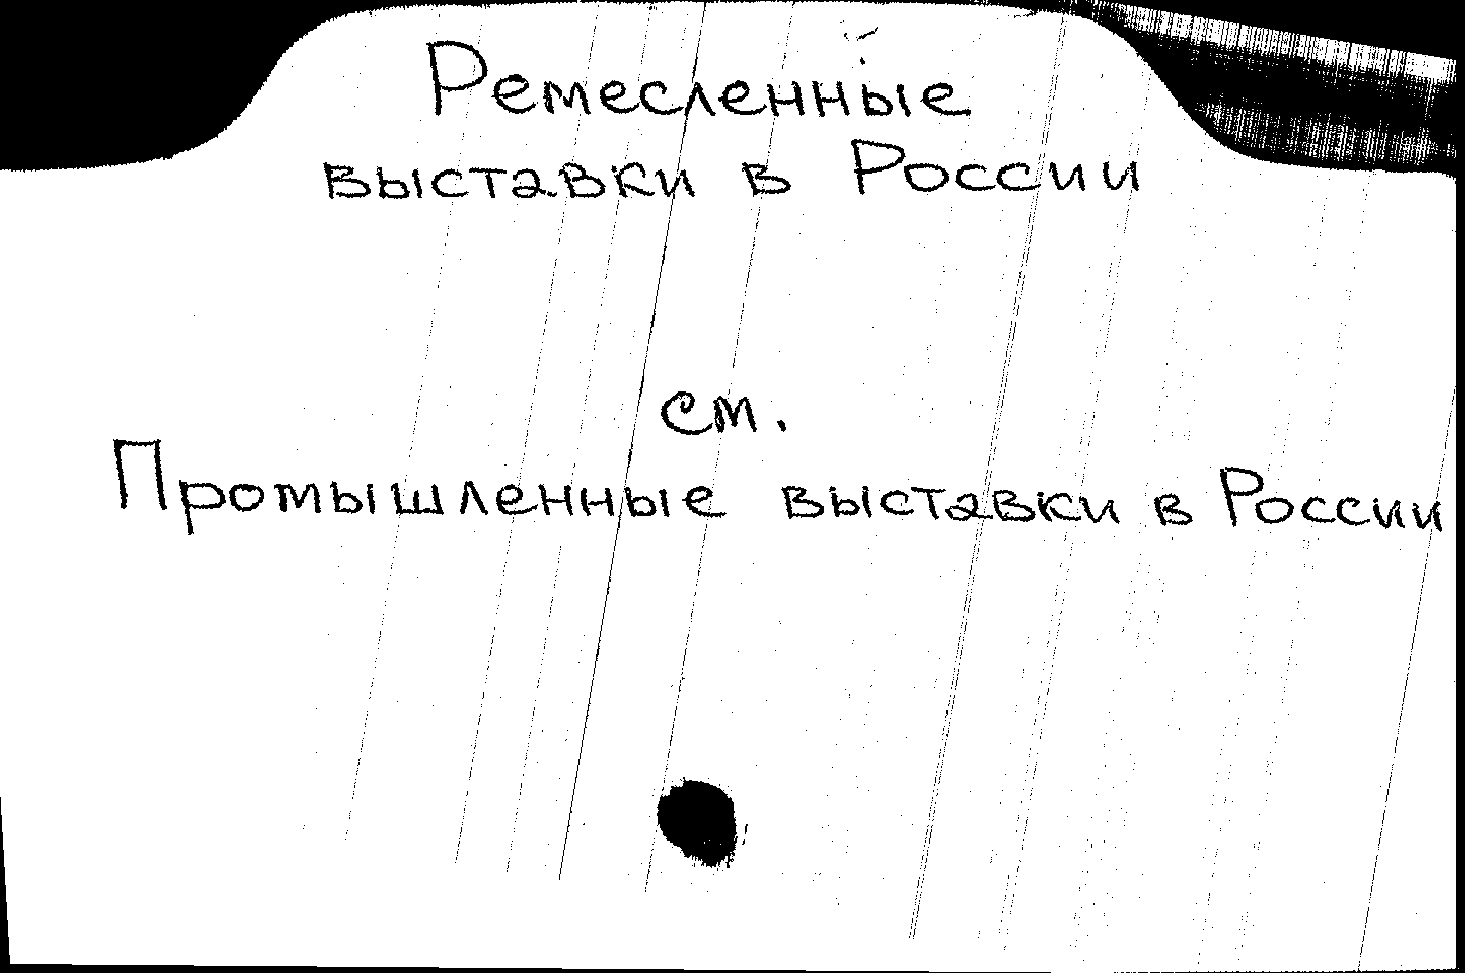 Ремесленные
выставки в России
см.
Промышленные выставки в России